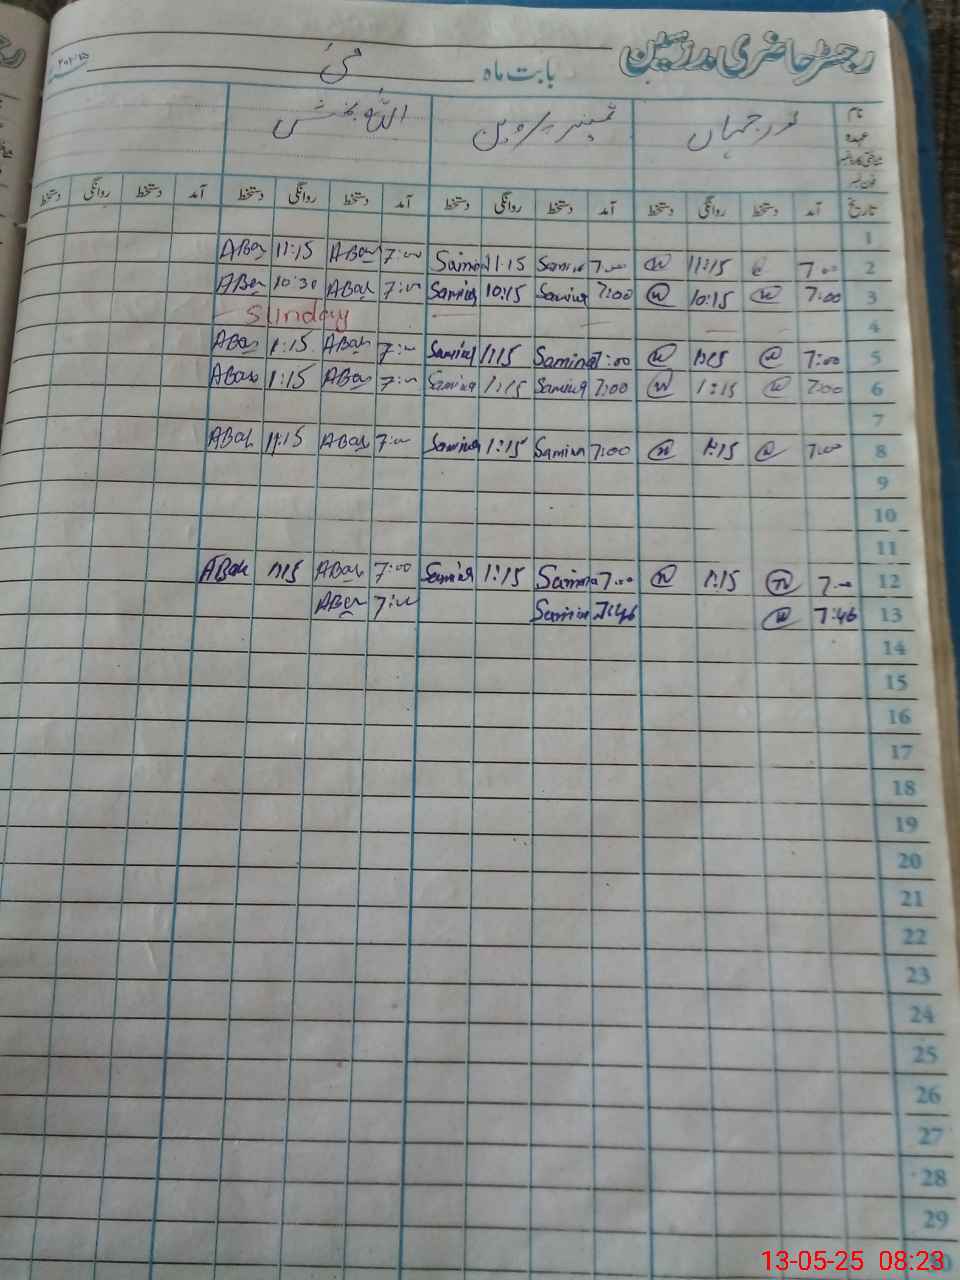 رجسٹر حاضری مدرسین
بابت ماہ مئی ۲۰۲۵
نام نور جہاں ثمینہ پروین اللہ بخش
عہدہ
فون نمبر
تاریخ آمد دستخط روانگی دستخط آمد دستخط روانگی دستخط آمد دستخط روانگی دستخط آمد دستخط روانگی دستخط
1
2 7:00 11:15 7:00 Samina 11:15 Samina 7:00 ABah 11:15 ABah
3 7:00 10:15 7:00 Samina 10:15 Samina 7:00 ABah 10:30 ABah
4 Sunday
5 7:00 1:15 7:00 Samina 1:15 Samina 7:00 ABah 1:15 ABah
6 7:00 1:15 7:00 Samina 1:15 Samina 7:00 ABah 1:15 ABah
7
8 7:00 1:15 7:00 Samina 1:15 Samina 7:00 ABah 1:15 ABah
9
10
11
12 7:00 1:15 7:00 Samina 1:15 Samina 7:00 ABah 1:15 ABah
13 7:46 7:46 Samina 7:00 ABah
14
15
16
17
18
19
20
21
22
23
24
25
26
27
28
29
30
13-05-25 08:23